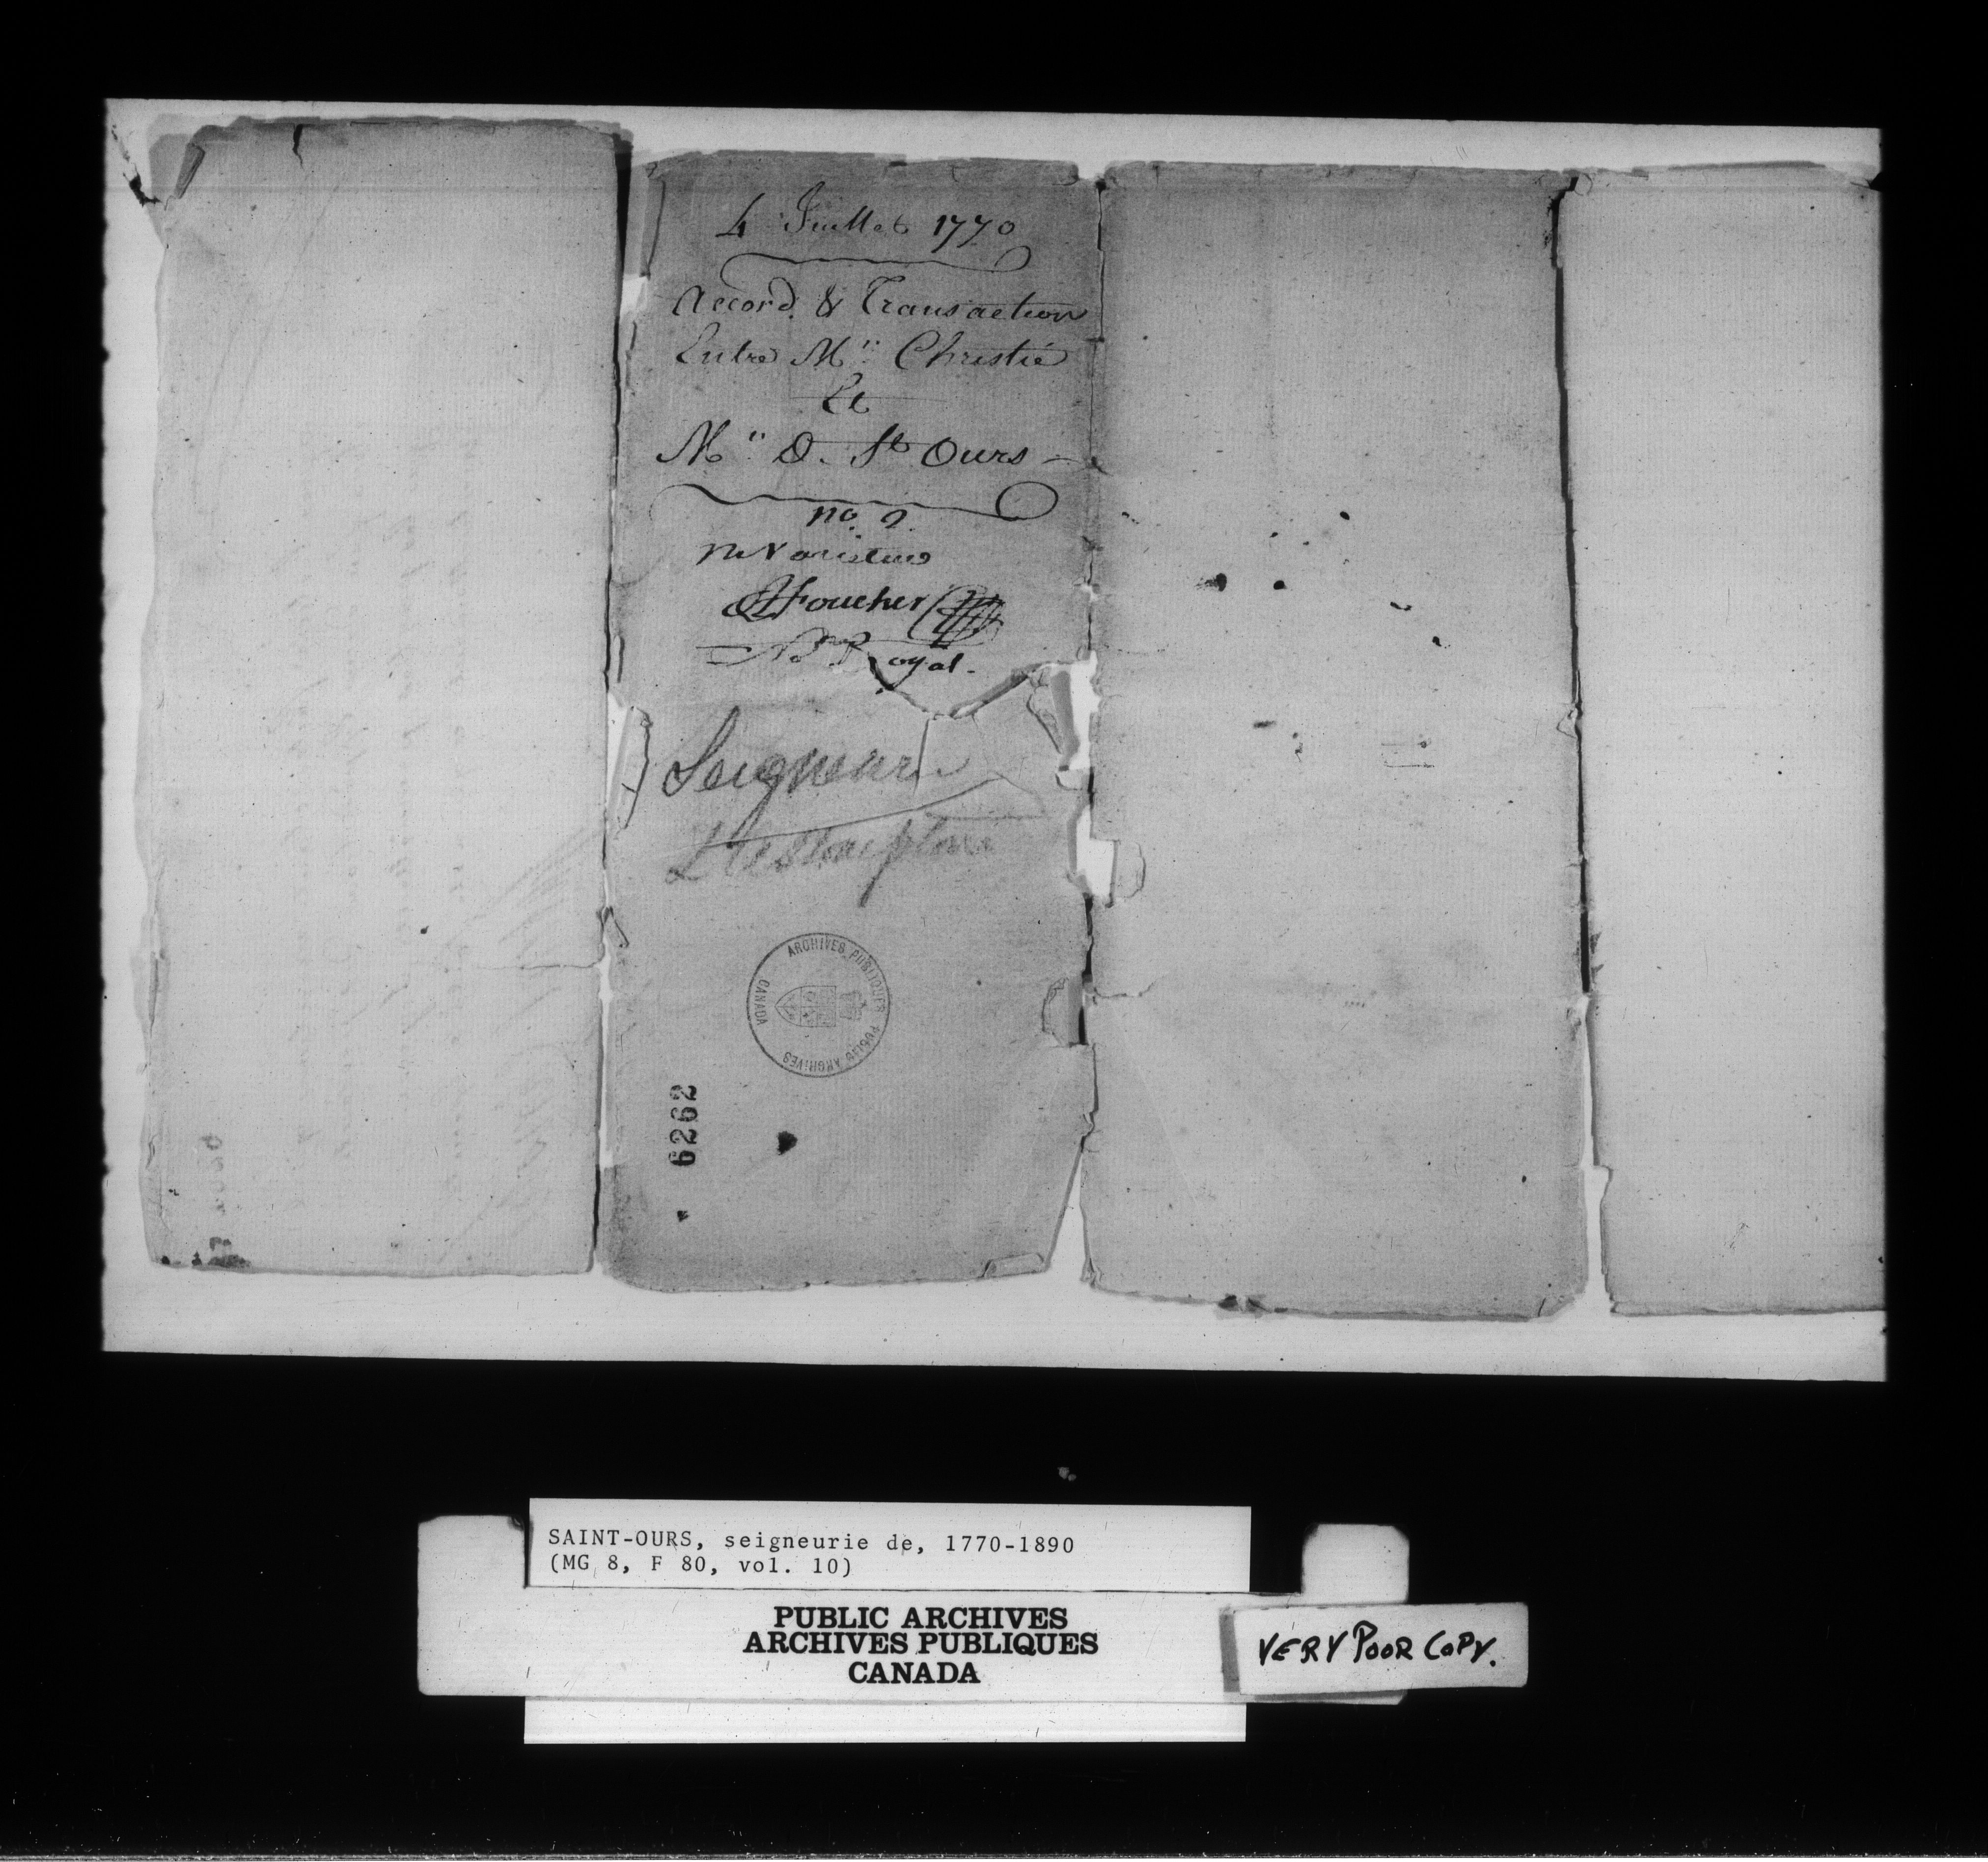 4 Juillet 1770
Accord & Transaction
Entre Mrs. Christie
Et
Mr. D. St Ours
no. 2.
ne Varietur
Foucher
No. Royal.
Seigneurie
ARCHIVES PUBLIQUES PUBLIC ARCHIVES CANADA
6262
SAINT-OURS, seigneurie de, 1770-1890
(MG 8, F 80, vol. 10)
PUBLIC ARCHIVES
ARCHIVES PUBLIQUES
CANADA
VERY POOR COPY.